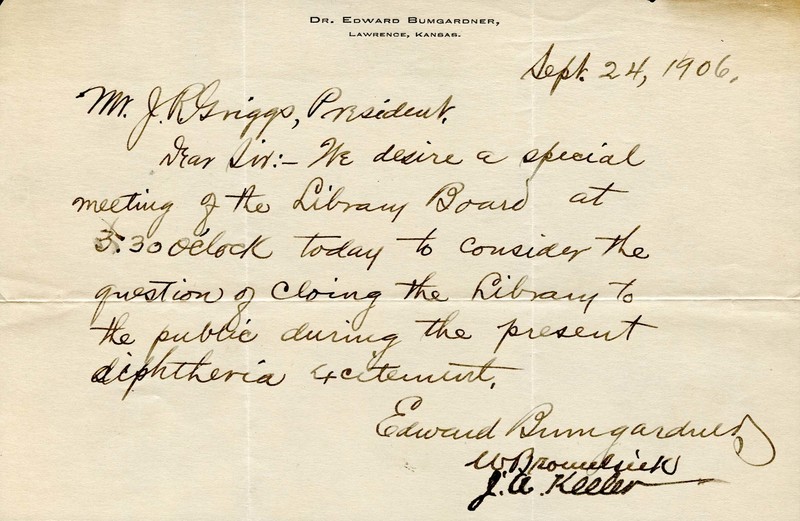 Dr. Edward Bumgardner,
Lawrence, Kansas.
Sept. 24, 1906.
Mr. J. R. Griggs, President,
Dear Sir:– We desire a special
meeting of the Library Board at
3.30 o'clock today to consider the
question of cloing the Library to
the public during the present
diphtheria excitement.
Edward Bumgardner
W Bromelsick
J. A. Keeler